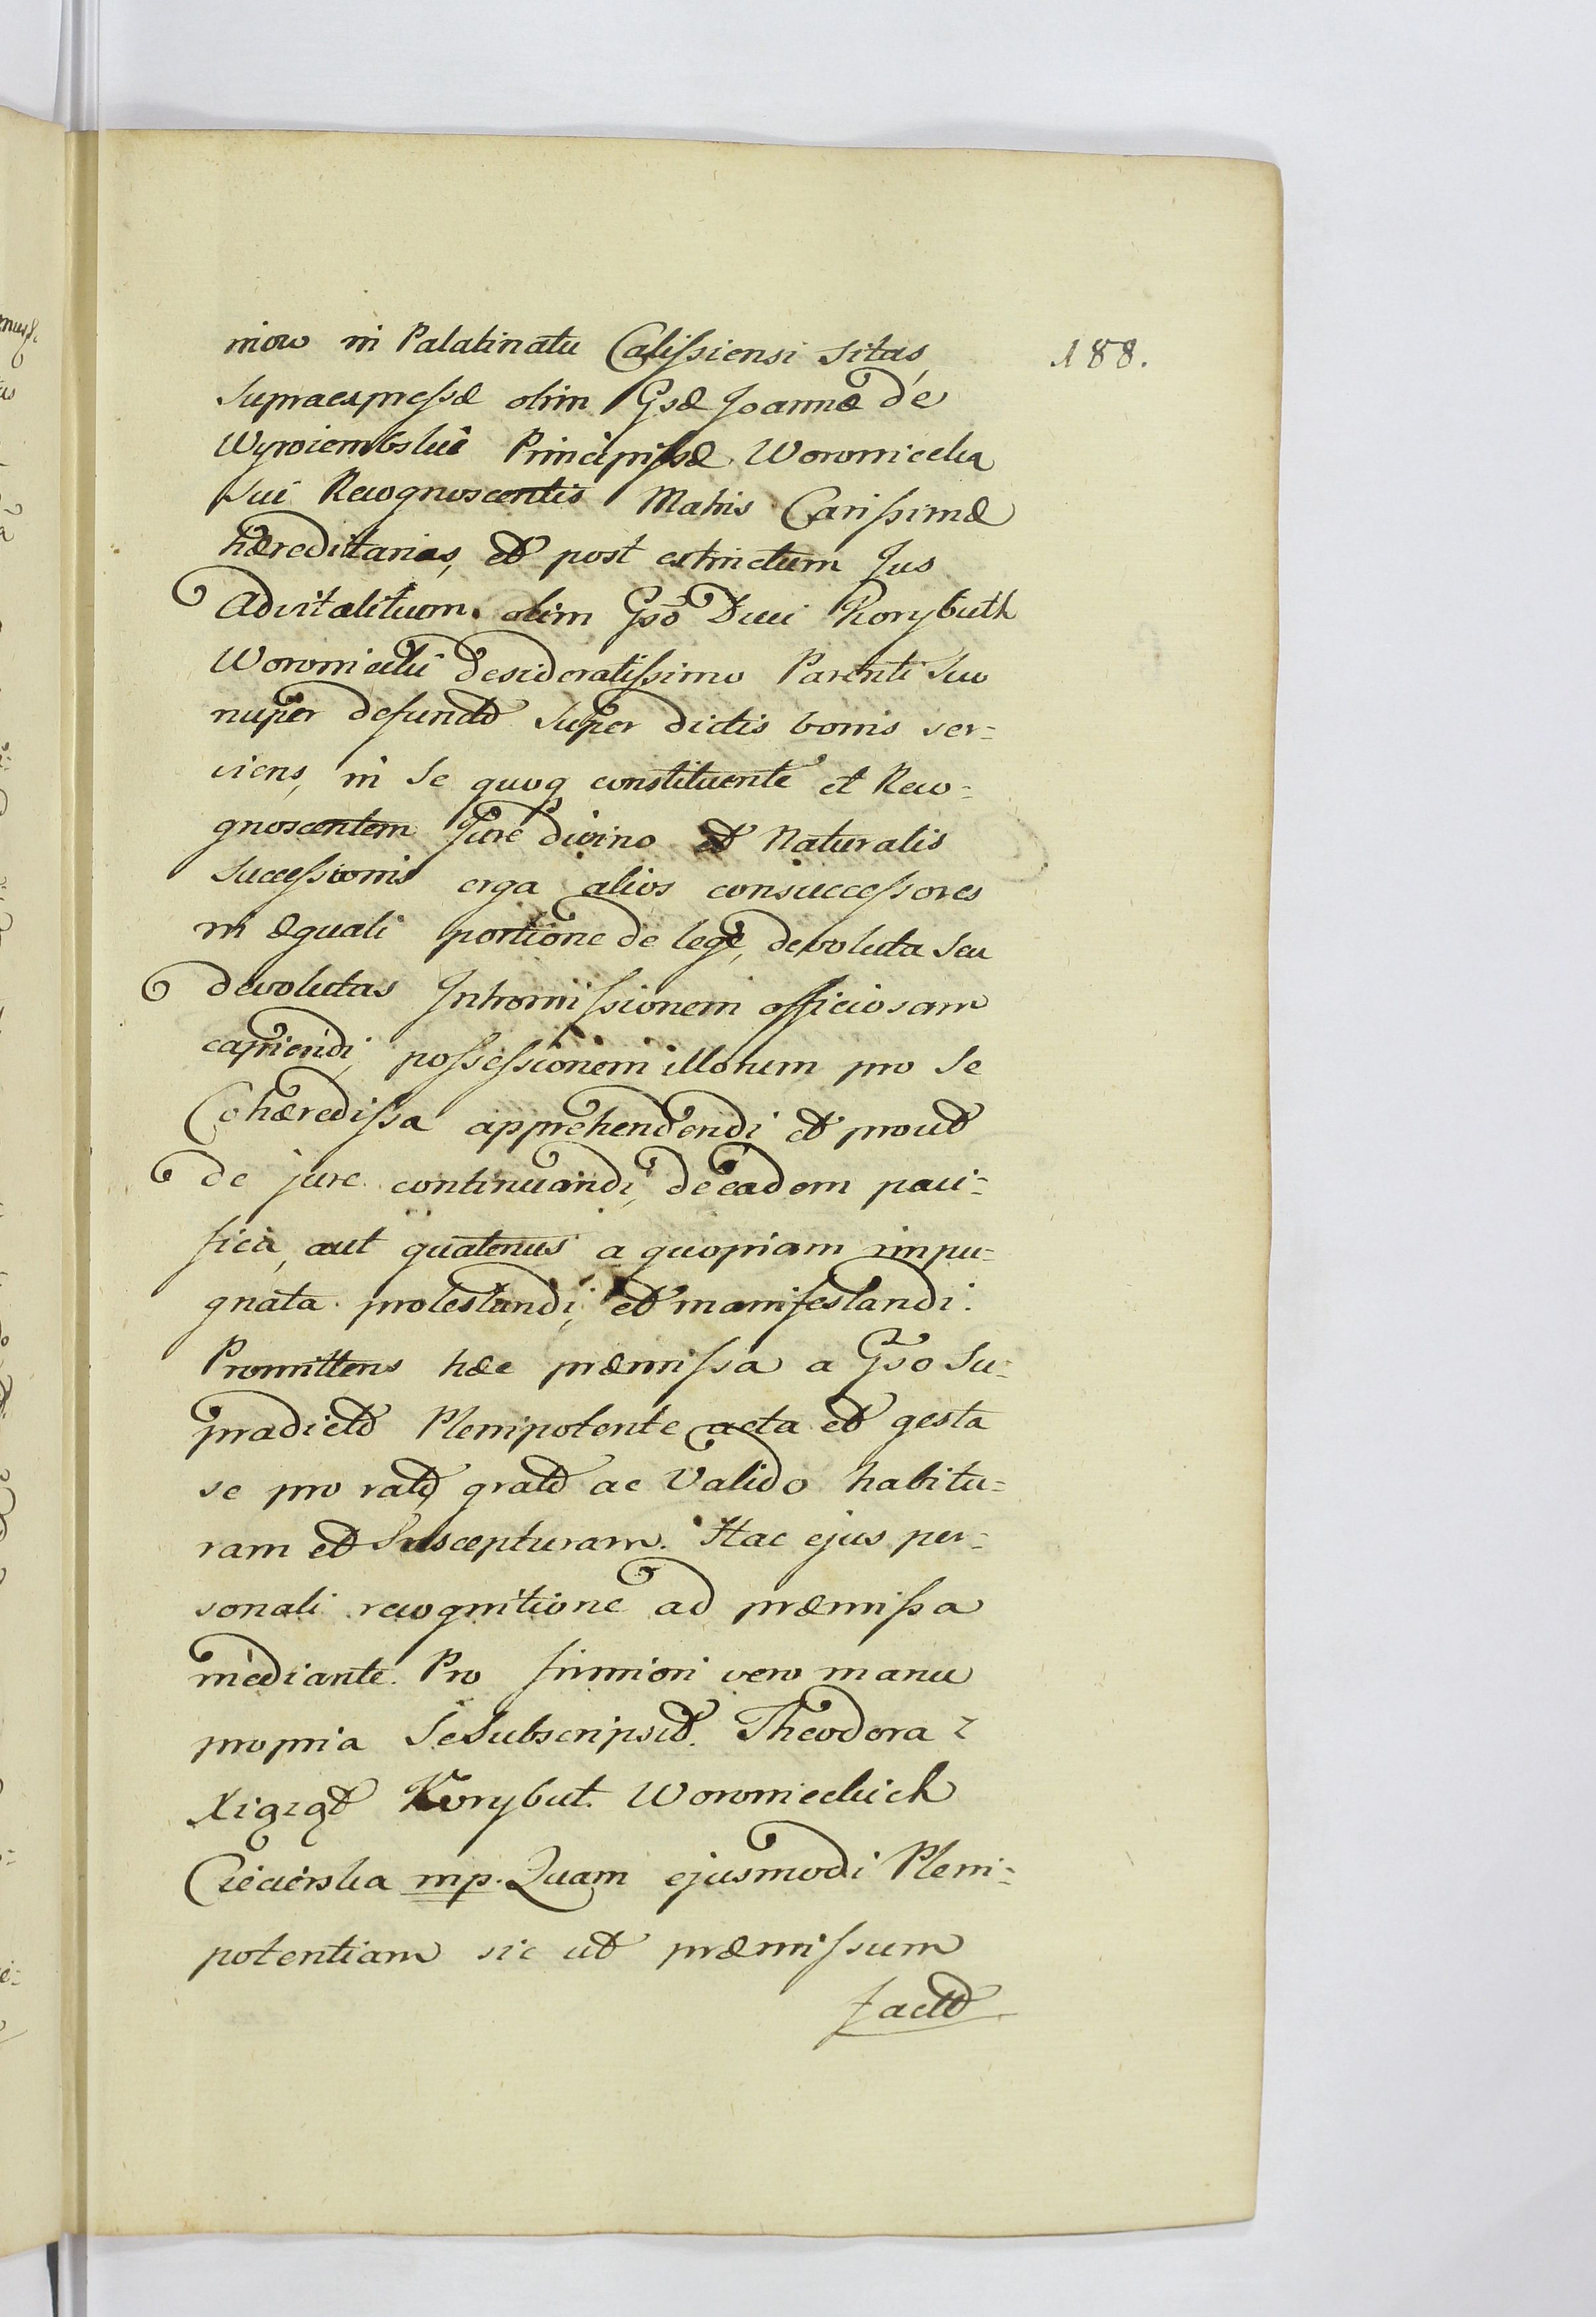 niow in Palatinatu Calissiensi sitas,
188.
supraexpressæ olim Gsæ Joannæ de
Wyrziembskie Principissæ Woroniecka
sui Recognoscentis Matris Carissimæ
hæreditarias, et post extinctum Jus
Advitalitium olim Gso Duci Korybuth
Woroniecki desideratissimo Parenti suo
nuper defuncto super dictis bonis ser=
viens, in se quoq constituente et Reco=
gnoscentem Jure divino et Naturalis
successionis erga alios consuccessores
in æquali portione de lege, devoluta seu
devolutas Intromissionem officiosam
capiendi, possessionem illorum pro se
Cohæredissa apprehendendi et prout
de jure continuandi, de eadem paci=
fica, aut quatenus a quopiam impu=
gnata protestandi, et manifestandi.
Promittens hæc præmissa a Gso su=
pradicto Plenipotente acta et gesta
se pro rato, grato ac valido habitu=
ram et suscepturam. Hac ejus per=
sonali recognitione ad præmissa
mediante. Pro firmiori vero manu
propria se subscripsit. Theodora z
Xiążąt Korybut Woronieckich
Ciecierska mp. Quam ejusmodi Pleni=
potentiam sic ut præmissum
facto